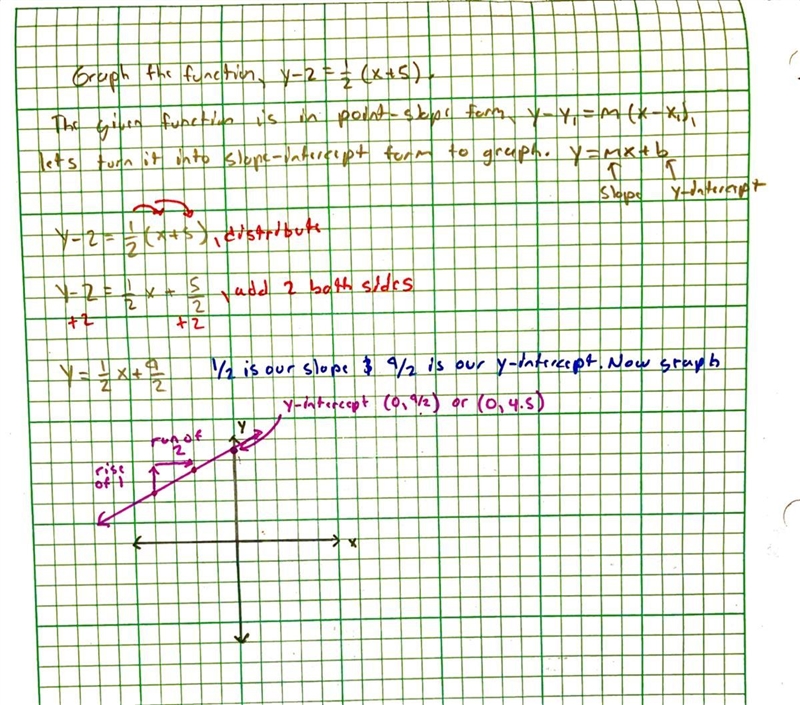 Graph the function, y-2=½(x+5).
The given function is in point-slope form, y-y₁=m(x-x₁),
lets turn it into slope-intercept form to graph. y=mx+b
slope y-intercept
y-2=½(x+5), distribute
y-2=½x+5/2, add 2 both sides
+2 +2
y=½x+9/2 1/2 is our slope & 9/2 is our y-intercept. Now graph
y-intercept (0, 9/2) or (0, 4.5)
y
run of 2
rise of 1
x